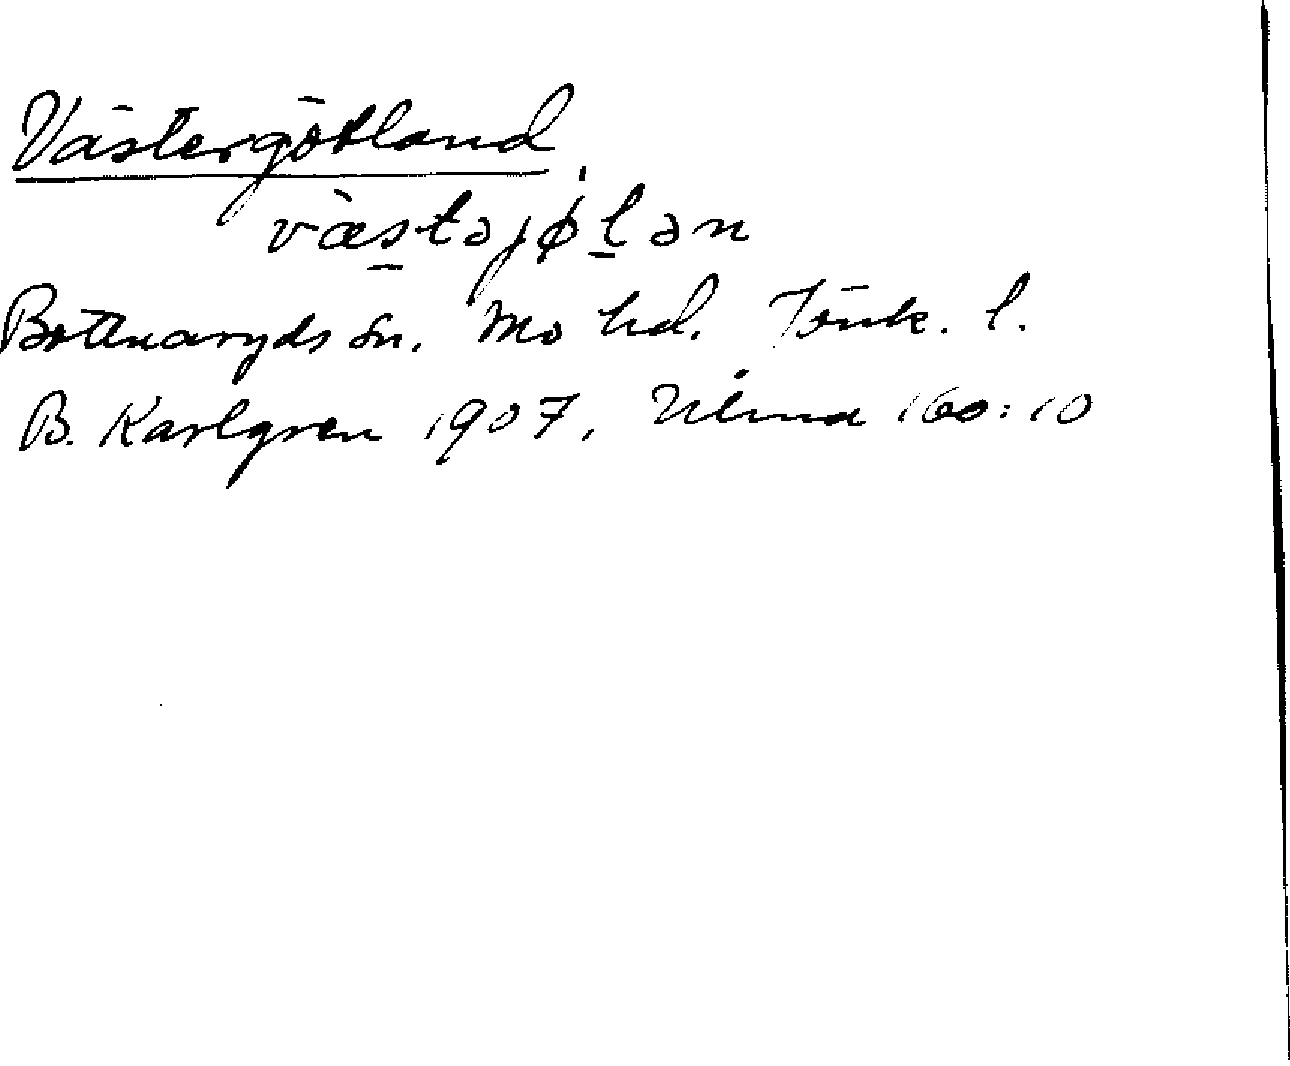 Västergötland
væ̀stəjǿlən
Bottnaryds sn. Mo hd. Jönk. l.
B. Karlgren 1907. Ulma 160:10